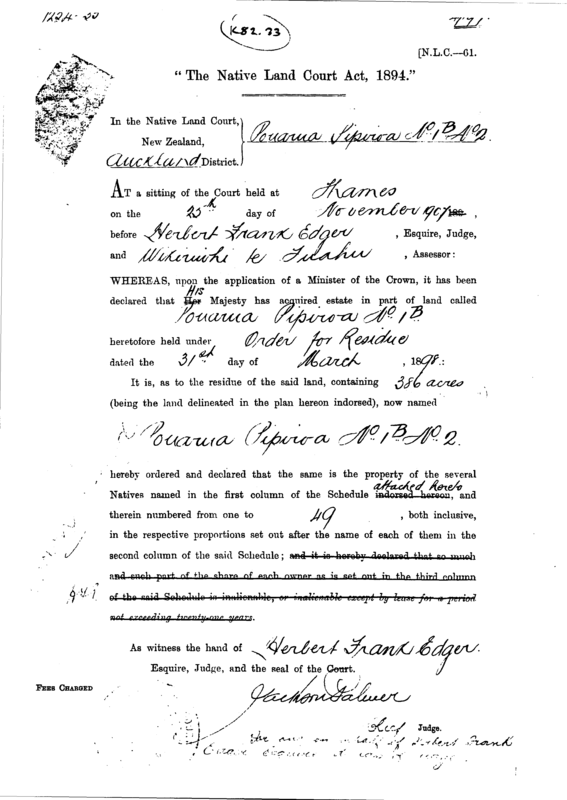 K82.73
[N.L.C.—61.
"The Native Land Court Act, 1894."
In the Native Land Court,
New Zealand,
Auckland District.
Pouarua Pipiroa No. 1B No 2.
AT a sitting of the Court held at Thames
on the 25th day of November 1907,
before Herbert Frank Edger, Esquire, Judge,
and Wikiriwhi te Tuahu, Assessor:
WHEREAS, upon the application of a Minister of the Crown, it has been
declared that Her His Majesty has acquired estate in part of land called
Pouarua Pipiroa No. 1B
heretofore held under Order for Residue
dated the 31st day of March, 1898.:
It is, as to the residue of the said land, containing 386 acres
(being the land delineated in the plan hereon indorsed), now named
Pouarua Pipiroa No. 1B No. 2.
hereby ordered and declared that the same is the property of the several
Natives named in the first column of the Schedule indorsed hereon, attached hereto and
therein numbered from one to 49, both inclusive,
in the respective proportions set out after the name of each of them in the
second column of the said Schedule; and it is hereby declared that so much
and such part of the share of each owner as is set out in the third column
of the said Schedule is inalienable, or inalienable except by lease for a period
not exceeding twenty-one years.
As witness the hand of Herbert Frank Edger.
Esquire, Judge, and the seal of the Court.
FEES CHARGED
Jackson Palmer
Chief Judge.
Frank